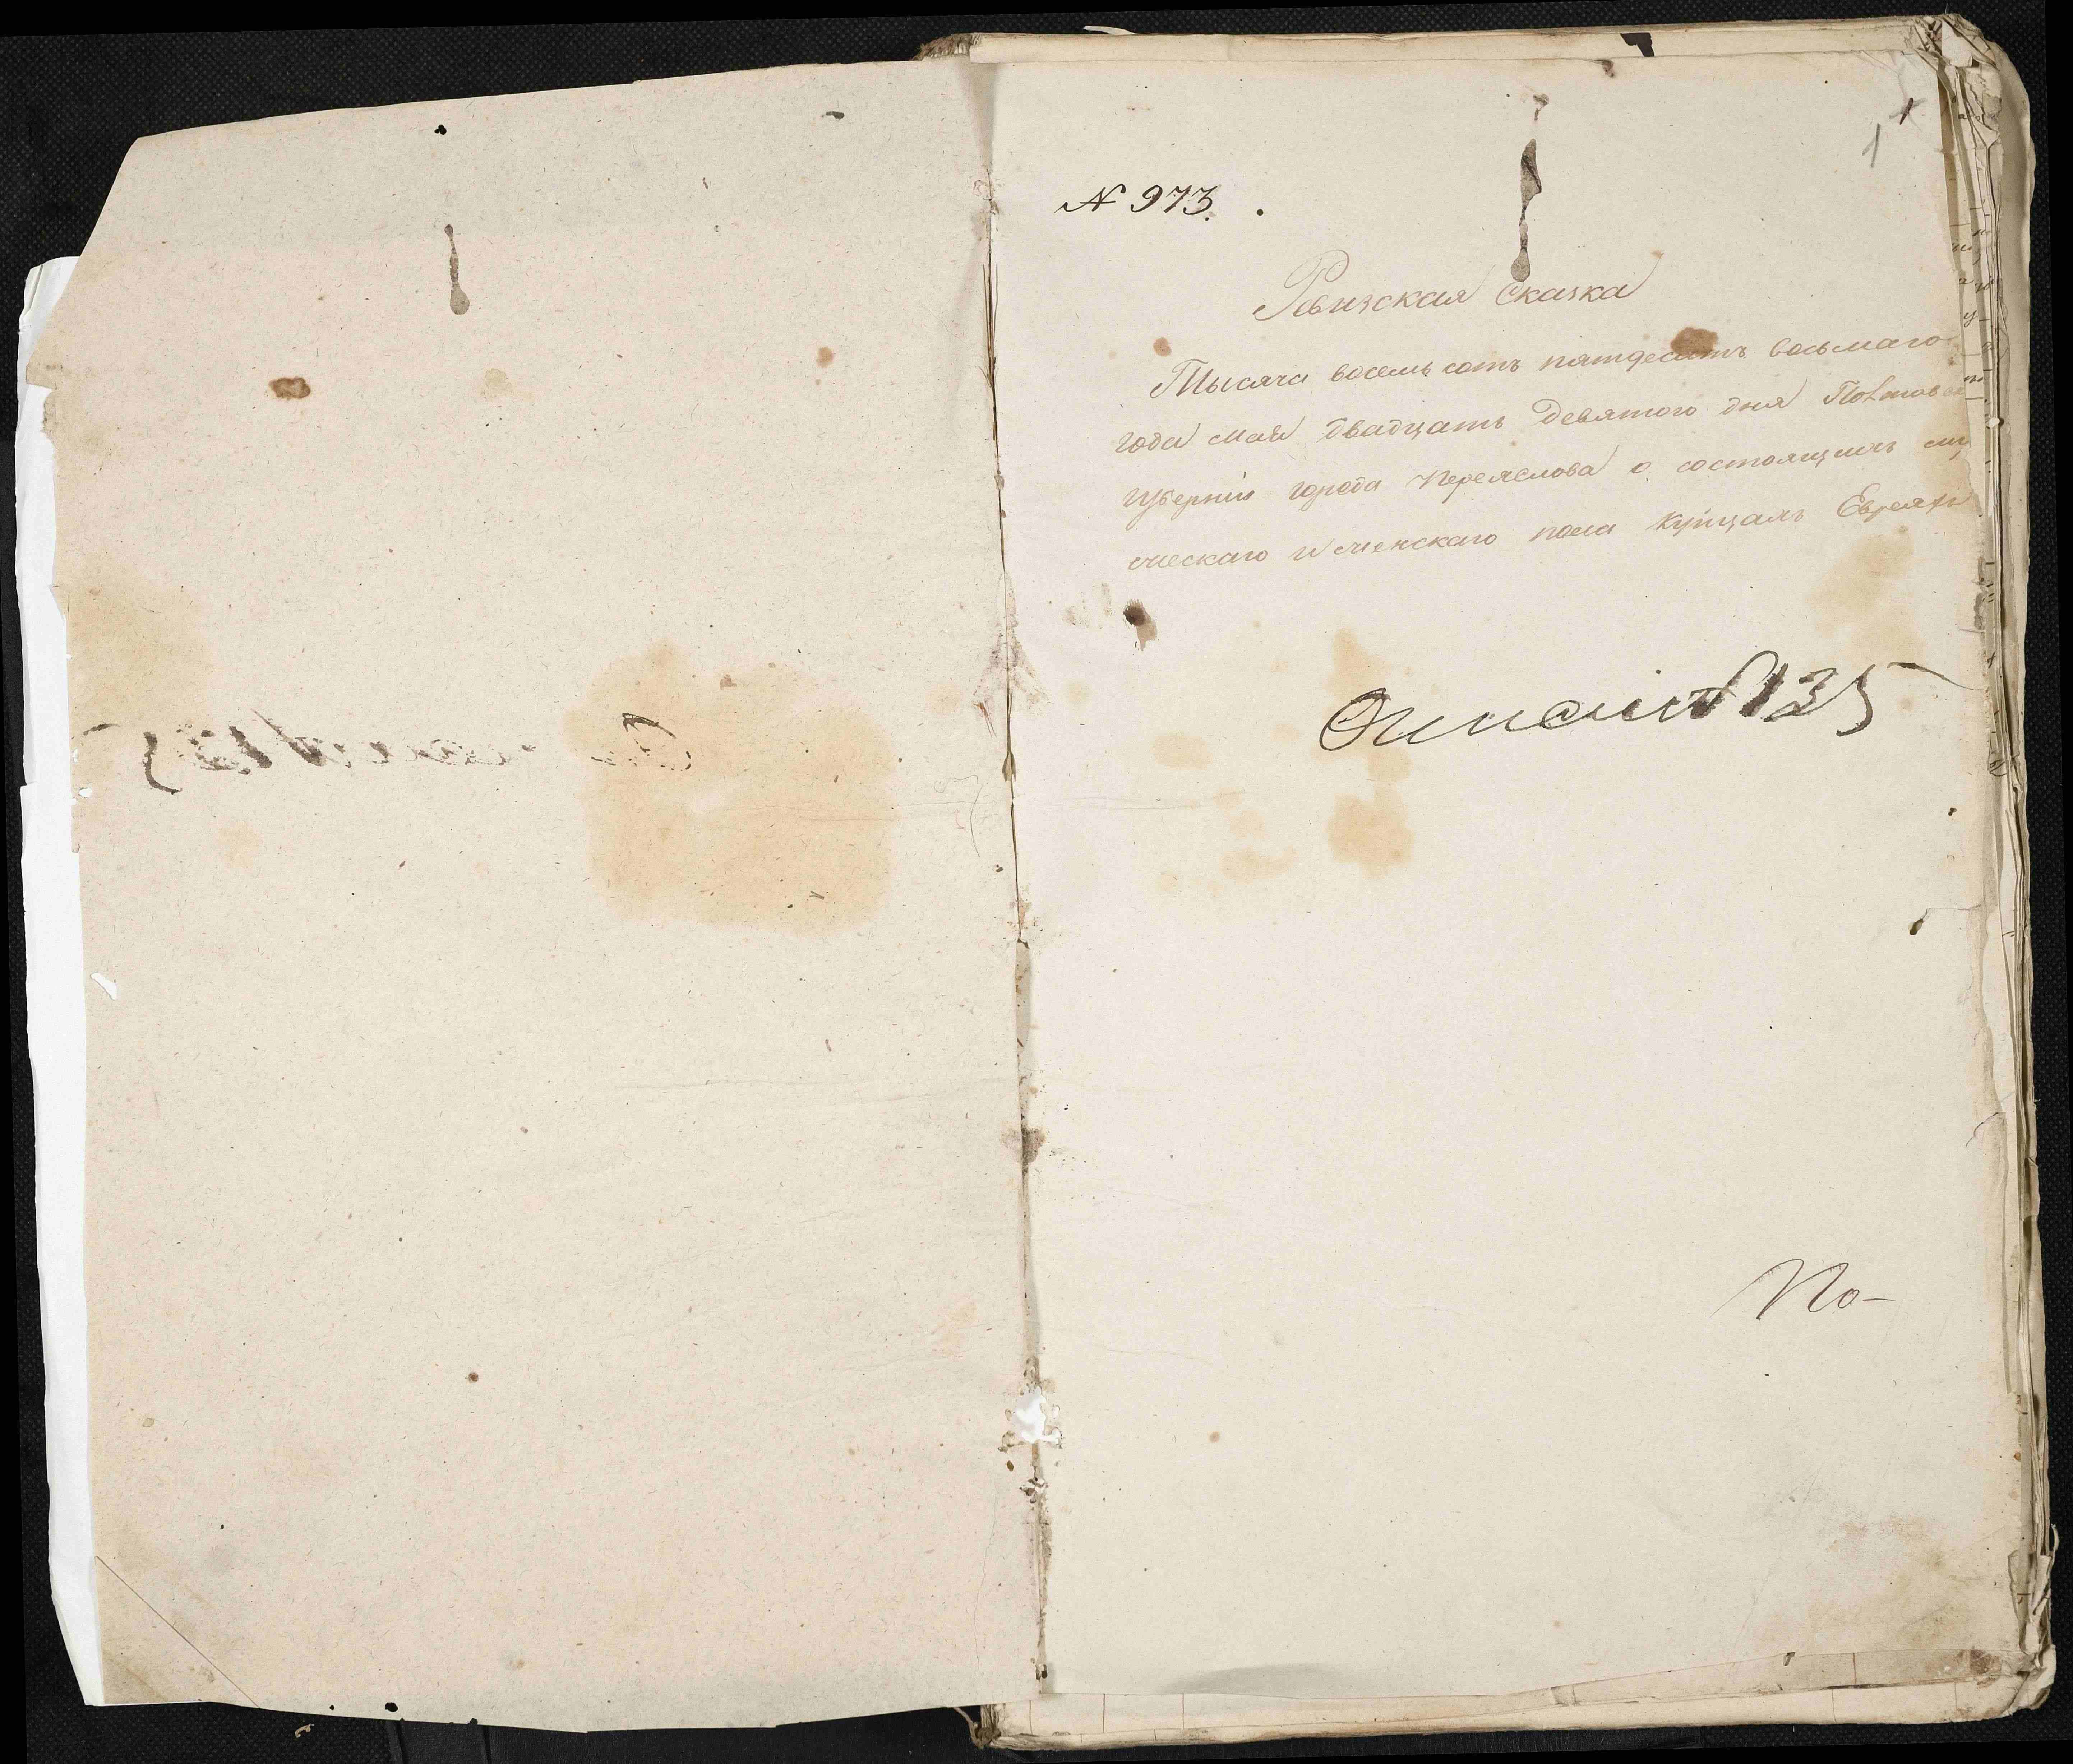 1
1
№ 973.
Ревизская сказка
Тысяча восемь сотъ пятдесятъ восьмаго
года мая двадцать девятого дня Полтавск
губерніи города Переяслова о состоящихъ му
ческаго и женскаго пола купцахъ Евреяхъ
№ 135
По-